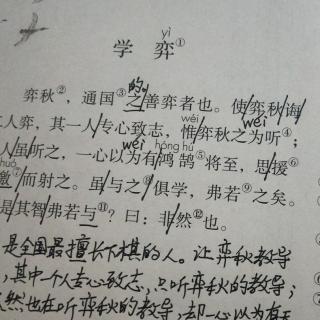 yì
学 弈①
的
弈秋②，通国③之善弈者也。使弈秋诲
wéi wèi
二人弈，其一人专心致志，惟弈秋之为听④；
hóng hú
人虽听之，一心以为有鸿鹄⑤将至，思援⑥
zhuó
缴⑦而射之。虽与之⑧俱学，弗若⑨之矣。
是其智弗若与⑪？曰：非然⑫也。
是全国最擅长下棋的人。让弈秋教导
，其中一个人专心致志，只听弈秋的教导；
虽然也在听弈秋的教导，却一心以为有天